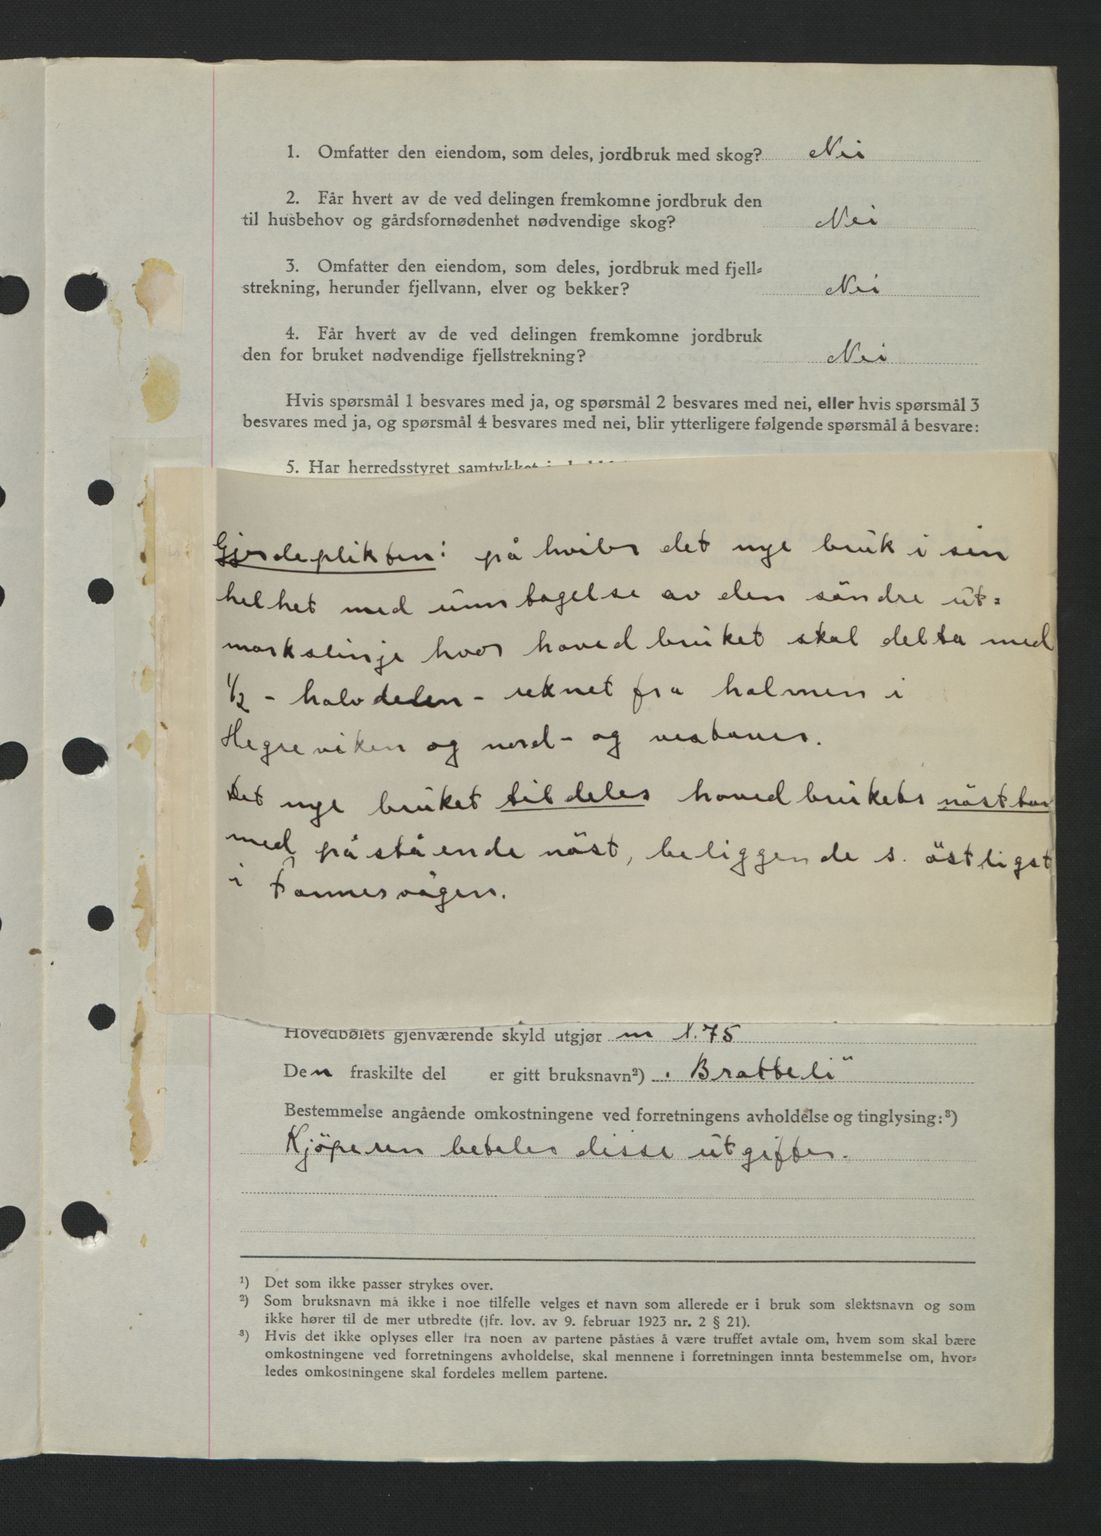 1. Omfatter den eiendom, som deles, jordbruk med skog? Nei
2. Får hvert av de ved delingen fremkomne jordbruk den
til husbehov og gårdsfornødenhet nødvendige skog? Nei
3. Omfatter den eiendom, som deles, jordbruk med fjell=
strekning, herunder fjellvann, elver og bekker? Nei
4. Får hvert av de ved delingen fremkomne jordbruk
den for bruket nødvendige fjellstrekning? Nei
Hvis spørsmål 1 besvares med ja, og spørsmål 2 besvares med nei, eller hvis spørsmål 3
besvares med ja, og spørsmål 4 besvares med nei, blir ytterligere følgende spørsmål å besvare:
5. Har herredsstyret samtykket i
Gjerdeplikten: på hviler det nye bruk i sin
helhet med unntagelse av den søndre ut=
markslinje hvor hovedbruket skal delta med
1/2 - halvdelen - reknet fra holmen i
Hegreviken og nord- og vestover.
Det nye bruket tildeles hovedbrukets nösttuv
med påstående nöst, beliggende s. östligst
i Fannesvågen.
Hovedbølets gjenværende skyld utgjør m 1.75
Den fraskilte del er gitt bruksnavn²) „Bratteli"
Bestemmelse angående omkostningene ved forretningens avholdelse og tinglysing:³)
Kjöperen betaler disse utgifter.
¹) Det som ikke passer strykes over.
²) Som bruksnavn må ikke i noe tilfelle velges et navn som allerede er i bruk som slektsnavn og som
ikke hører til de mer utbredte (jfr. lov. av 9. februar 1923 nr. 2 § 21).
³) Hvis det ikke oplyses eller fra noen av partene påståes å være truffet avtale om, hvem som skal bære
omkostningene ved forretningens avholdelse, skal mennene i forretningen innta bestemmelse om, hvor=
ledes omkostningene skal fordeles mellem partene.